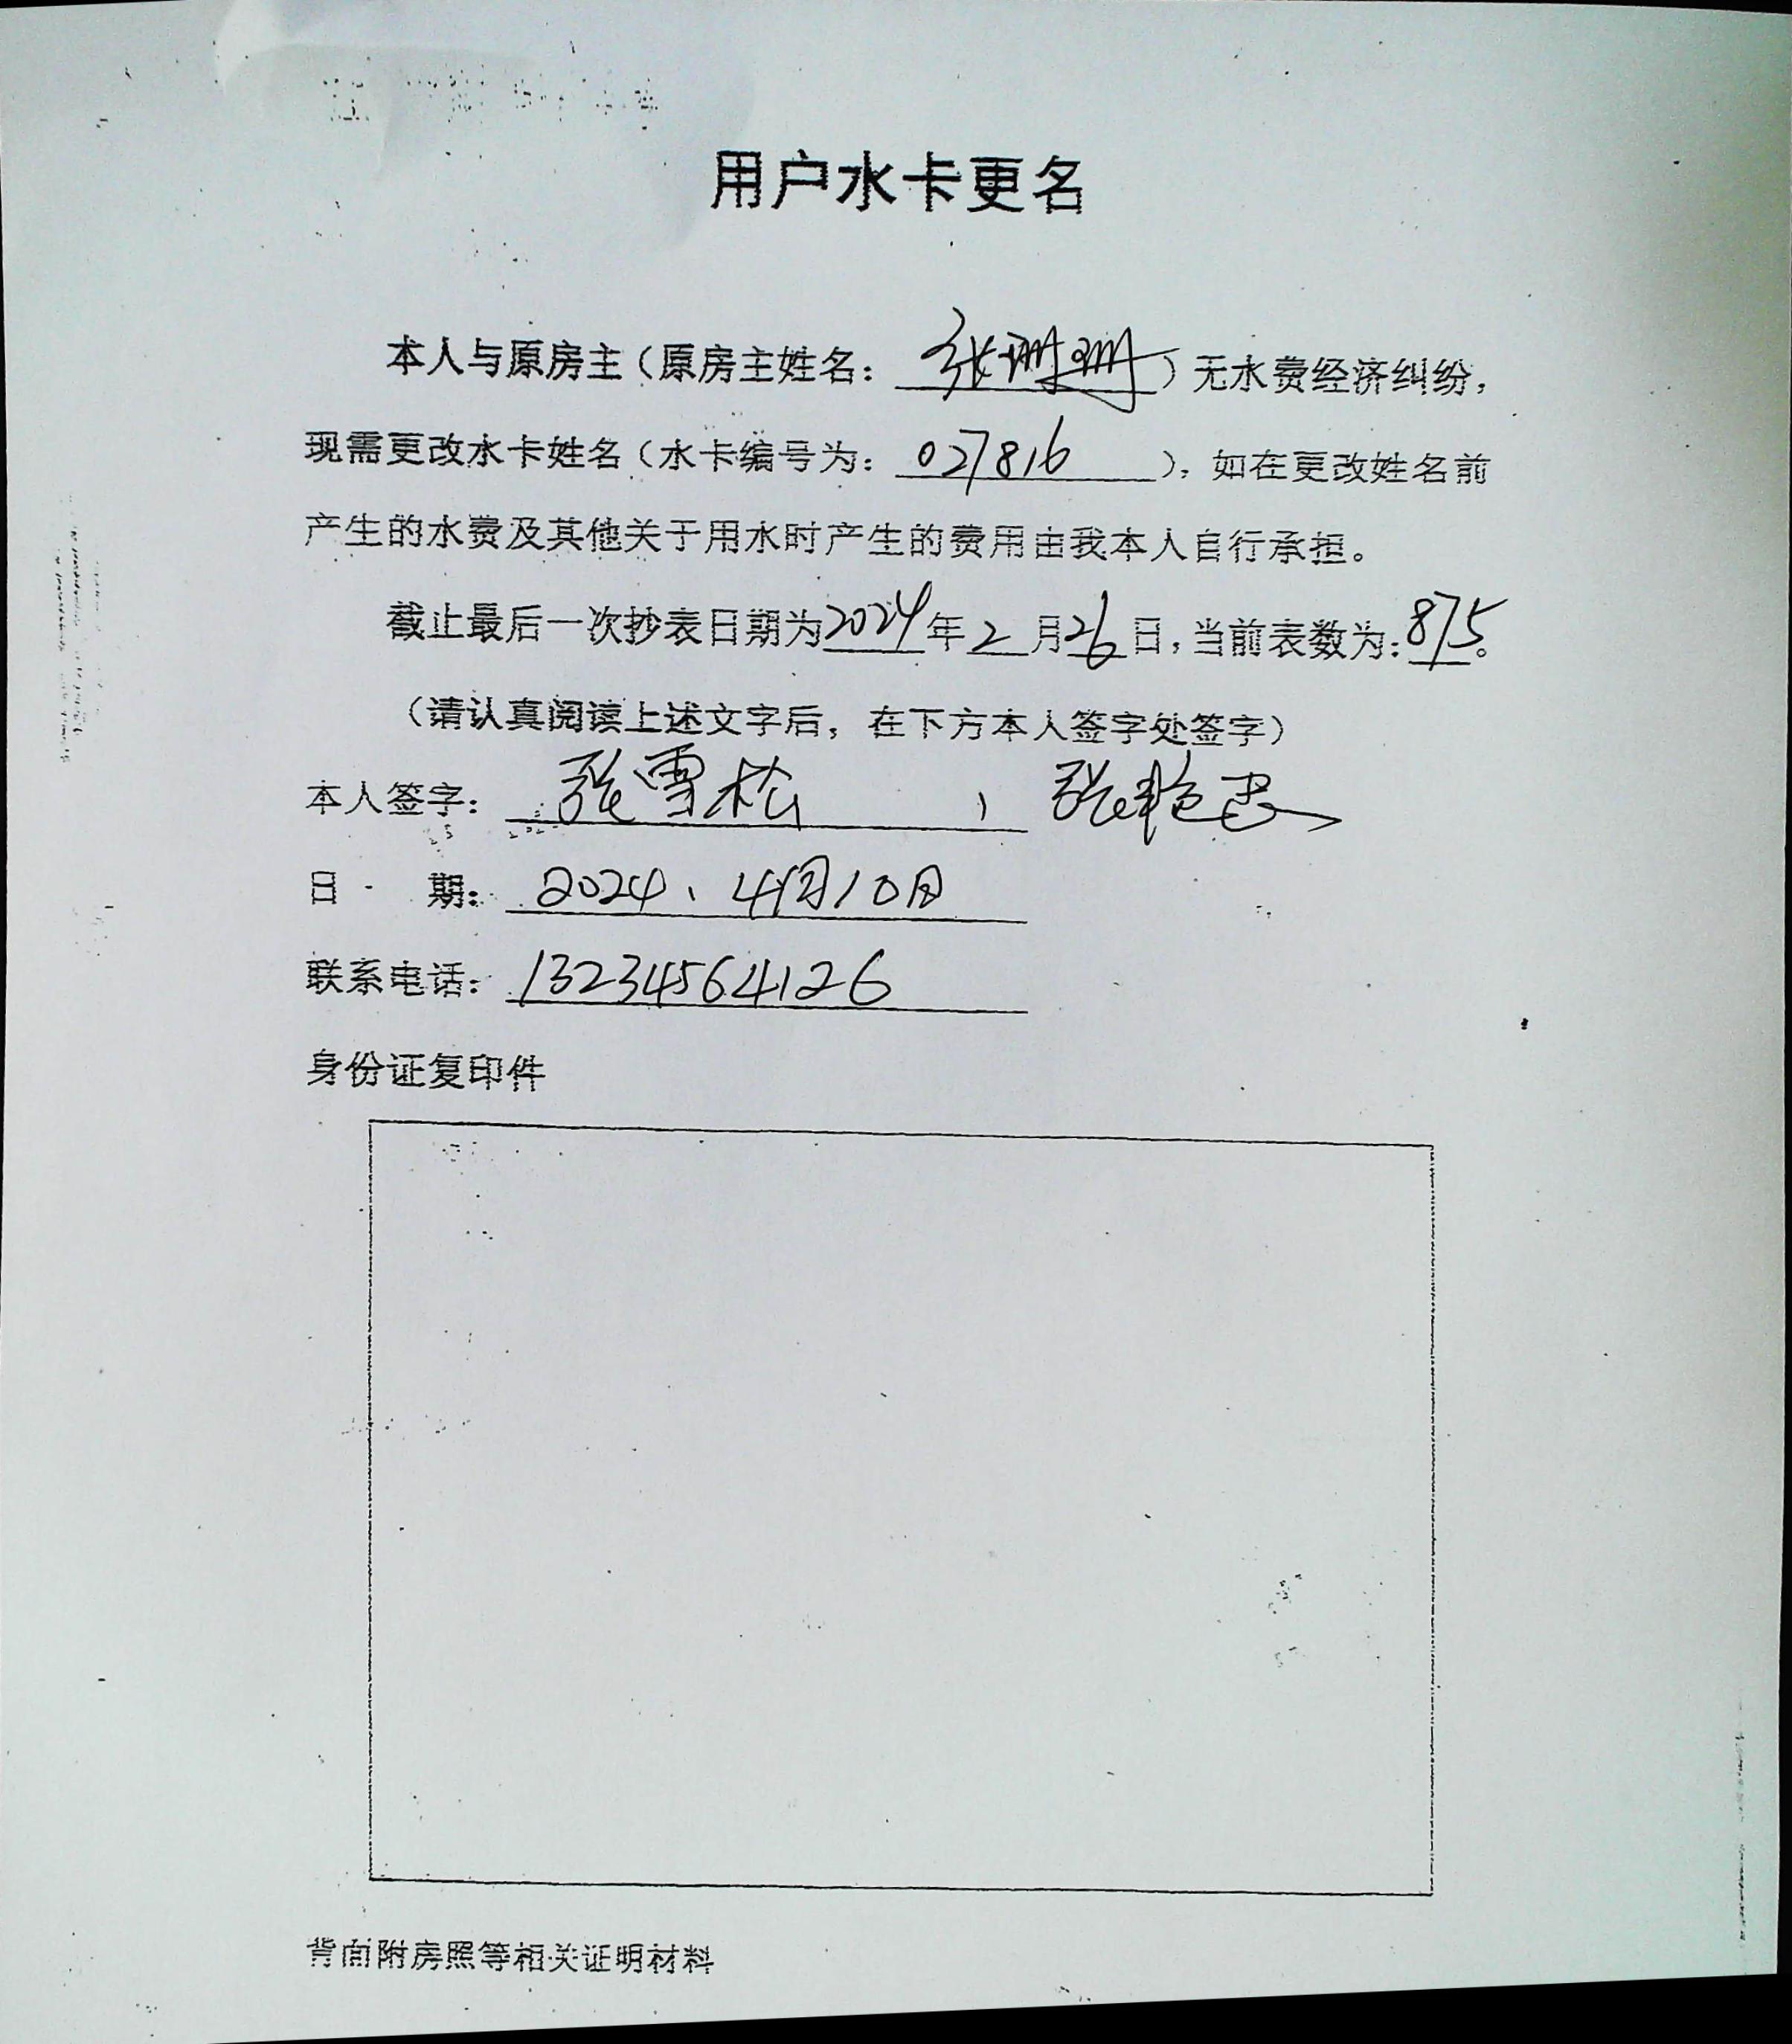 用户水卡更名
本人与原房主（原房主姓名：张珊珊）无水费经济纠纷，
现需更改水卡姓名（水卡编号为：027816），如在更改姓名前
产生的水费及其他关于用水时产生的费用由我本人自行承担。
截止最后一次抄表日期为2024年2月26日，当前表数为：875。
（请认真阅读上述文字后，在下方本人签字处签字）
本人签字：张雪松、张艳忠
日期：2024、4月10日
联系电话：13234564126
身份证复印件
背面附房照等相关证明材料